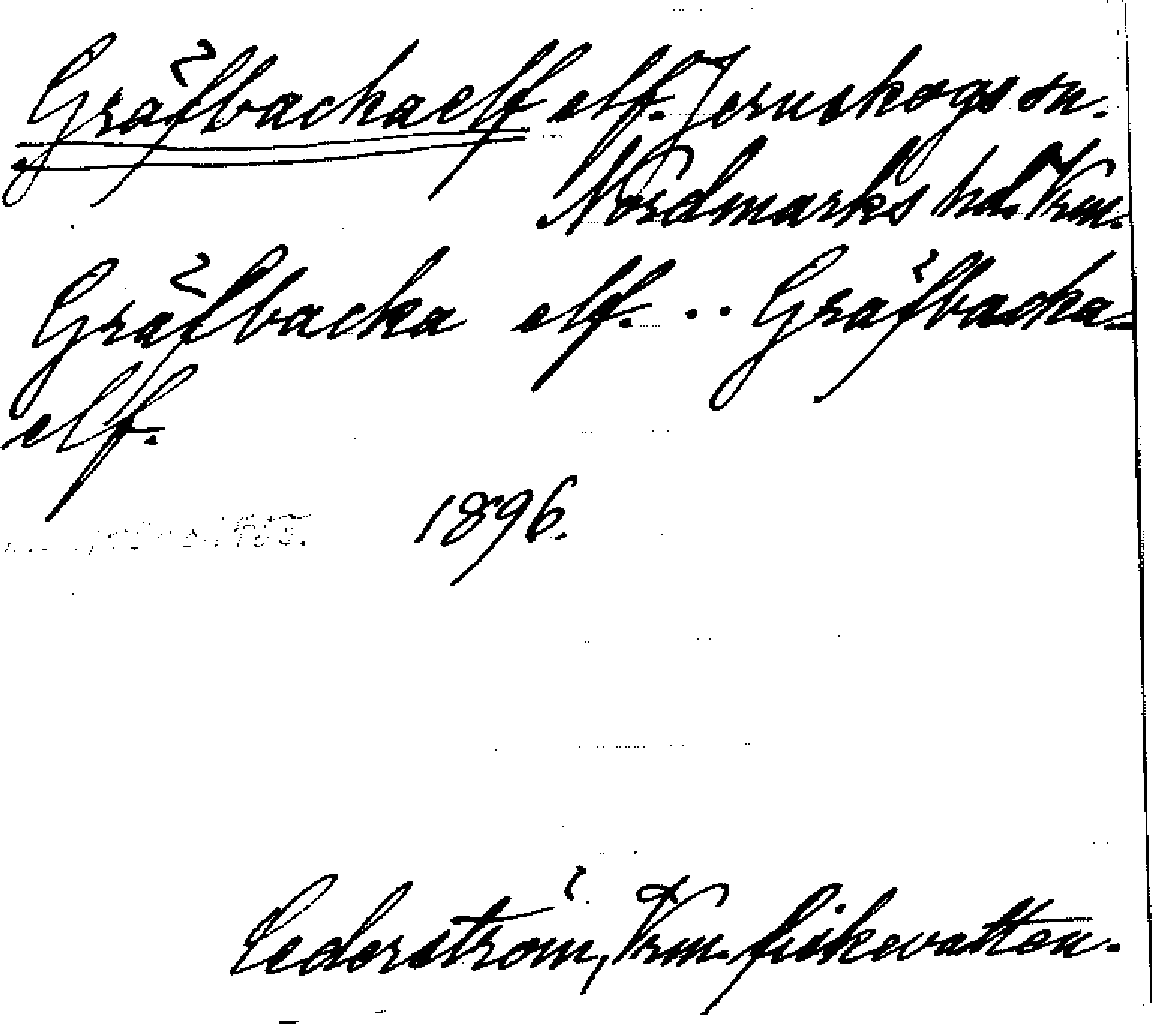 Gräfbackaelf elf. Jernskogs sn.
Nordmarks hd. Vrm.
Gräfbacka elf. .. Gräfbacka-
elf.
1896.
Cederström, Vrm. fiskevatten.